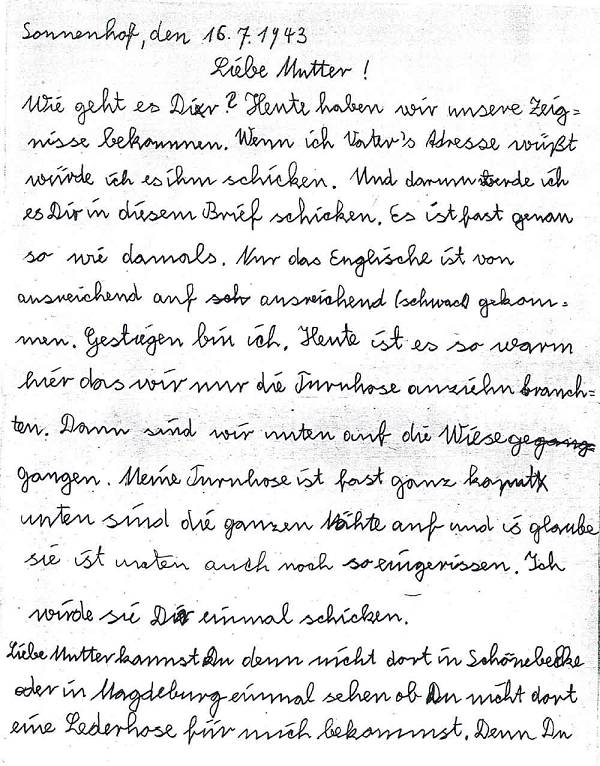 Sonnenhof, den 16.7.1943
Liebe Mutter!
Wie geht es Dir? Heute haben wir unsere Zeig=
nisse bekommen. Wenn ich Vater's Adresse wüßt
würde ich es ihm schicken. Und darum werde ich
es Dir in diesem Brief schicken. Es ist fast genau
so wie damals. Nur das Englische ist von
ausreichend auf sch ausreichend (schwach) gekom=
men. Gestiegen bin ich. Heute ist es so warm
hier das wir nur die Turnhose anziehn brauch=
ten. Dann sind wir unten auf die Wiese gegang
gangen. Meine Turnhose ist fast ganz kaputt
unten sind die ganzen Nähte auf und is glaube
sie ist unten auch noch so eingerissen. Ich
würde sie Dir einmal schicken.
Liebe Mutter kannst Du denn nicht dort in Schönebecke
oder in Magdeburg einmal sehen ob Du nicht dort
eine Lederhose für mich bekommst. Denn Du